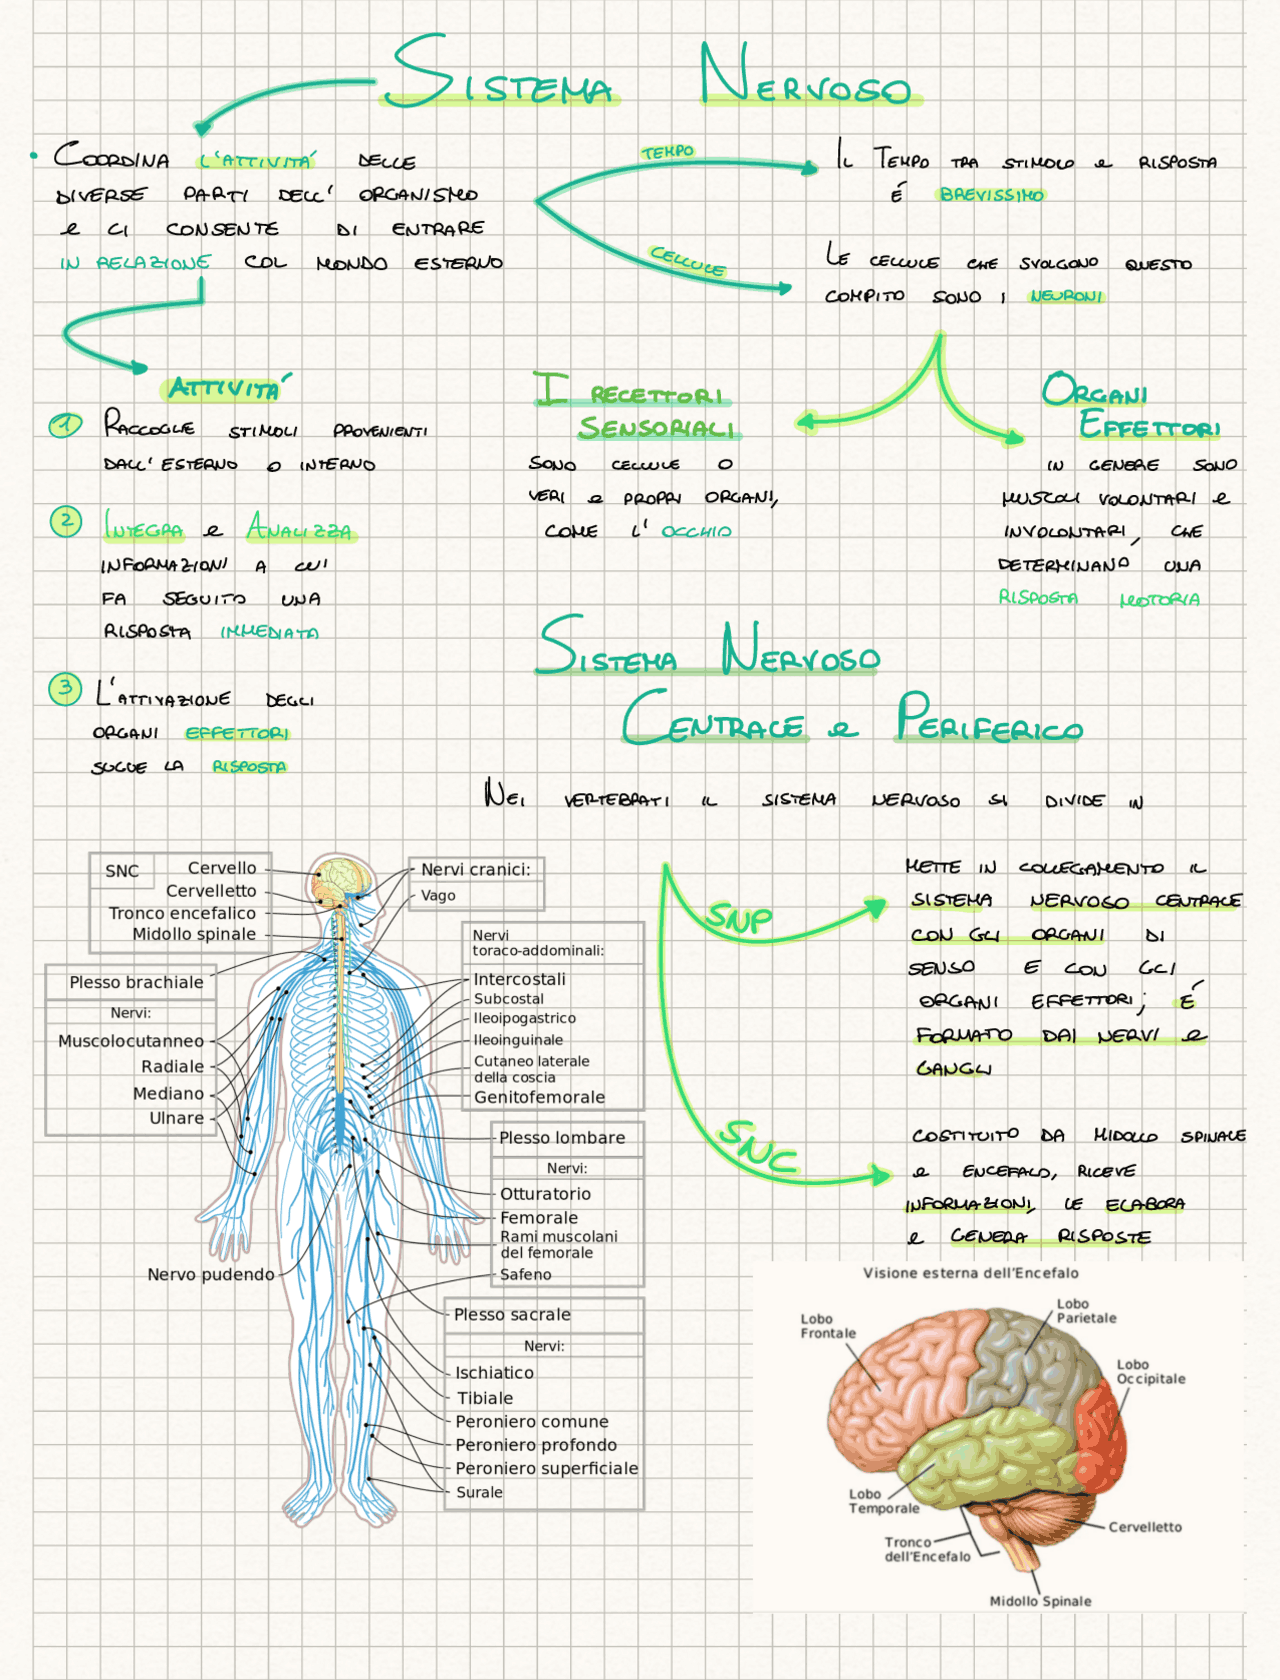 SISTEMA NERVOSO
• COORDINA L'ATTIVITÀ DELLE
DIVERSE PARTI DELL' ORGANISMO
e CI CONSENTE DI ENTRARE
IN RELAZIONE COL MONDO ESTERNO
TEMPO
IL TEMPO TRA STIMOLO e RISPOSTA
É BREVISSIMO
CELLULE
LE CELLULE CHE SVOLGONO QUESTO
COMPITO SONO I NEURONI
ATTIVITÁ
1 RACCOGLIE STIMOLI PROVENIENTI
DALL' ESTERNO O INTERNO
2 INTEGRA e ANALIZZA
INFORMAZIONI A CUI
FA SEGUITO UNA
RISPOSTA IMMEDIATA
3 L'ATTIVAZIONE DEGLI
ORGANI EFFETTORI
SEGUE LA RISPOSTA
I RECETTORI
SENSORIALI
SONO CELLULE O
VERI e PROPRI ORGANI,
COME L' OCCHIO
ORGANI
EFFETTORI
IN GENERE SONO
MUSCOLI VOLONTARI e
INVOLONTARI, CHE
DETERMINANO UNA
RISPOSTA MOTORIA
SISTEMA NERVOSO
CENTRALE e PERIFERICO
NEI VERTEBRATI IL SISTEMA NERVOSO SI DIVIDE IN
SNP
METTE IN COLLEGAMENTO IL
SISTEMA NERVOSO CENTRALE
CON GLI ORGANI DI
SENSO E CON GLI
ORGANI EFFETTORI; É
FORMATO DAI NERVI e
GANGLI
SNC
COSTITUITO DA MIDOLLO SPINALE
e ENCEFALO, RICEVE
INFORMAZIONI, LE ELABORA
e GENERA RISPOSTE
SNC
Cervello
Cervelletto
Tronco encefalico
Midollo spinale
Plesso brachiale
Nervi:
Muscolocutanneo
Radiale
Mediano
Ulnare
Nervo pudendo
Nervi cranici:
Vago
Nervi
toraco-addominali:
Intercostali
Subcostal
Ileoipogastrico
Ileoinguinale
Cutaneo laterale
della coscia
Genitofemorale
Plesso lombare
Nervi:
Otturatorio
Femorale
Rami muscolani
del femorale
Safeno
Plesso sacrale
Nervi:
Ischiatico
Tibiale
Peroniero comune
Peroniero profondo
Peroniero superficiale
Surale
Visione esterna dell'Encefalo
Lobo
Frontale
Lobo
Parietale
Lobo
Occipitale
Lobo
Temporale
Cervelletto
Tronco
dell'Encefalo
Midollo Spinale